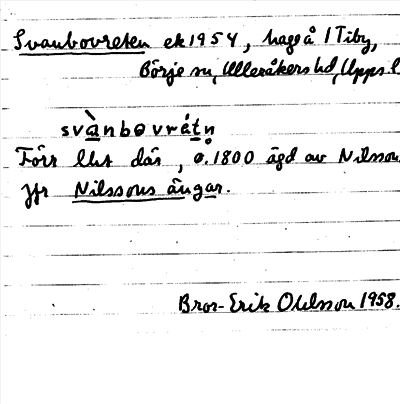 Svanbovreten ek 1954, hage å 1 Tiby,
Börje sn, Ulleråkers hd, Upps. l
svànbovrétn
Förr llst där, o. 1800 ägd av Nilsson
Jfr Nilssons ängar.
Bror-Erik Ohlsson 1958.